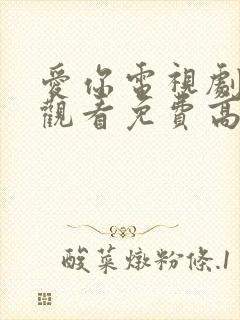 愛你電視劇
觀看免費高
酸菜燉粉條.1